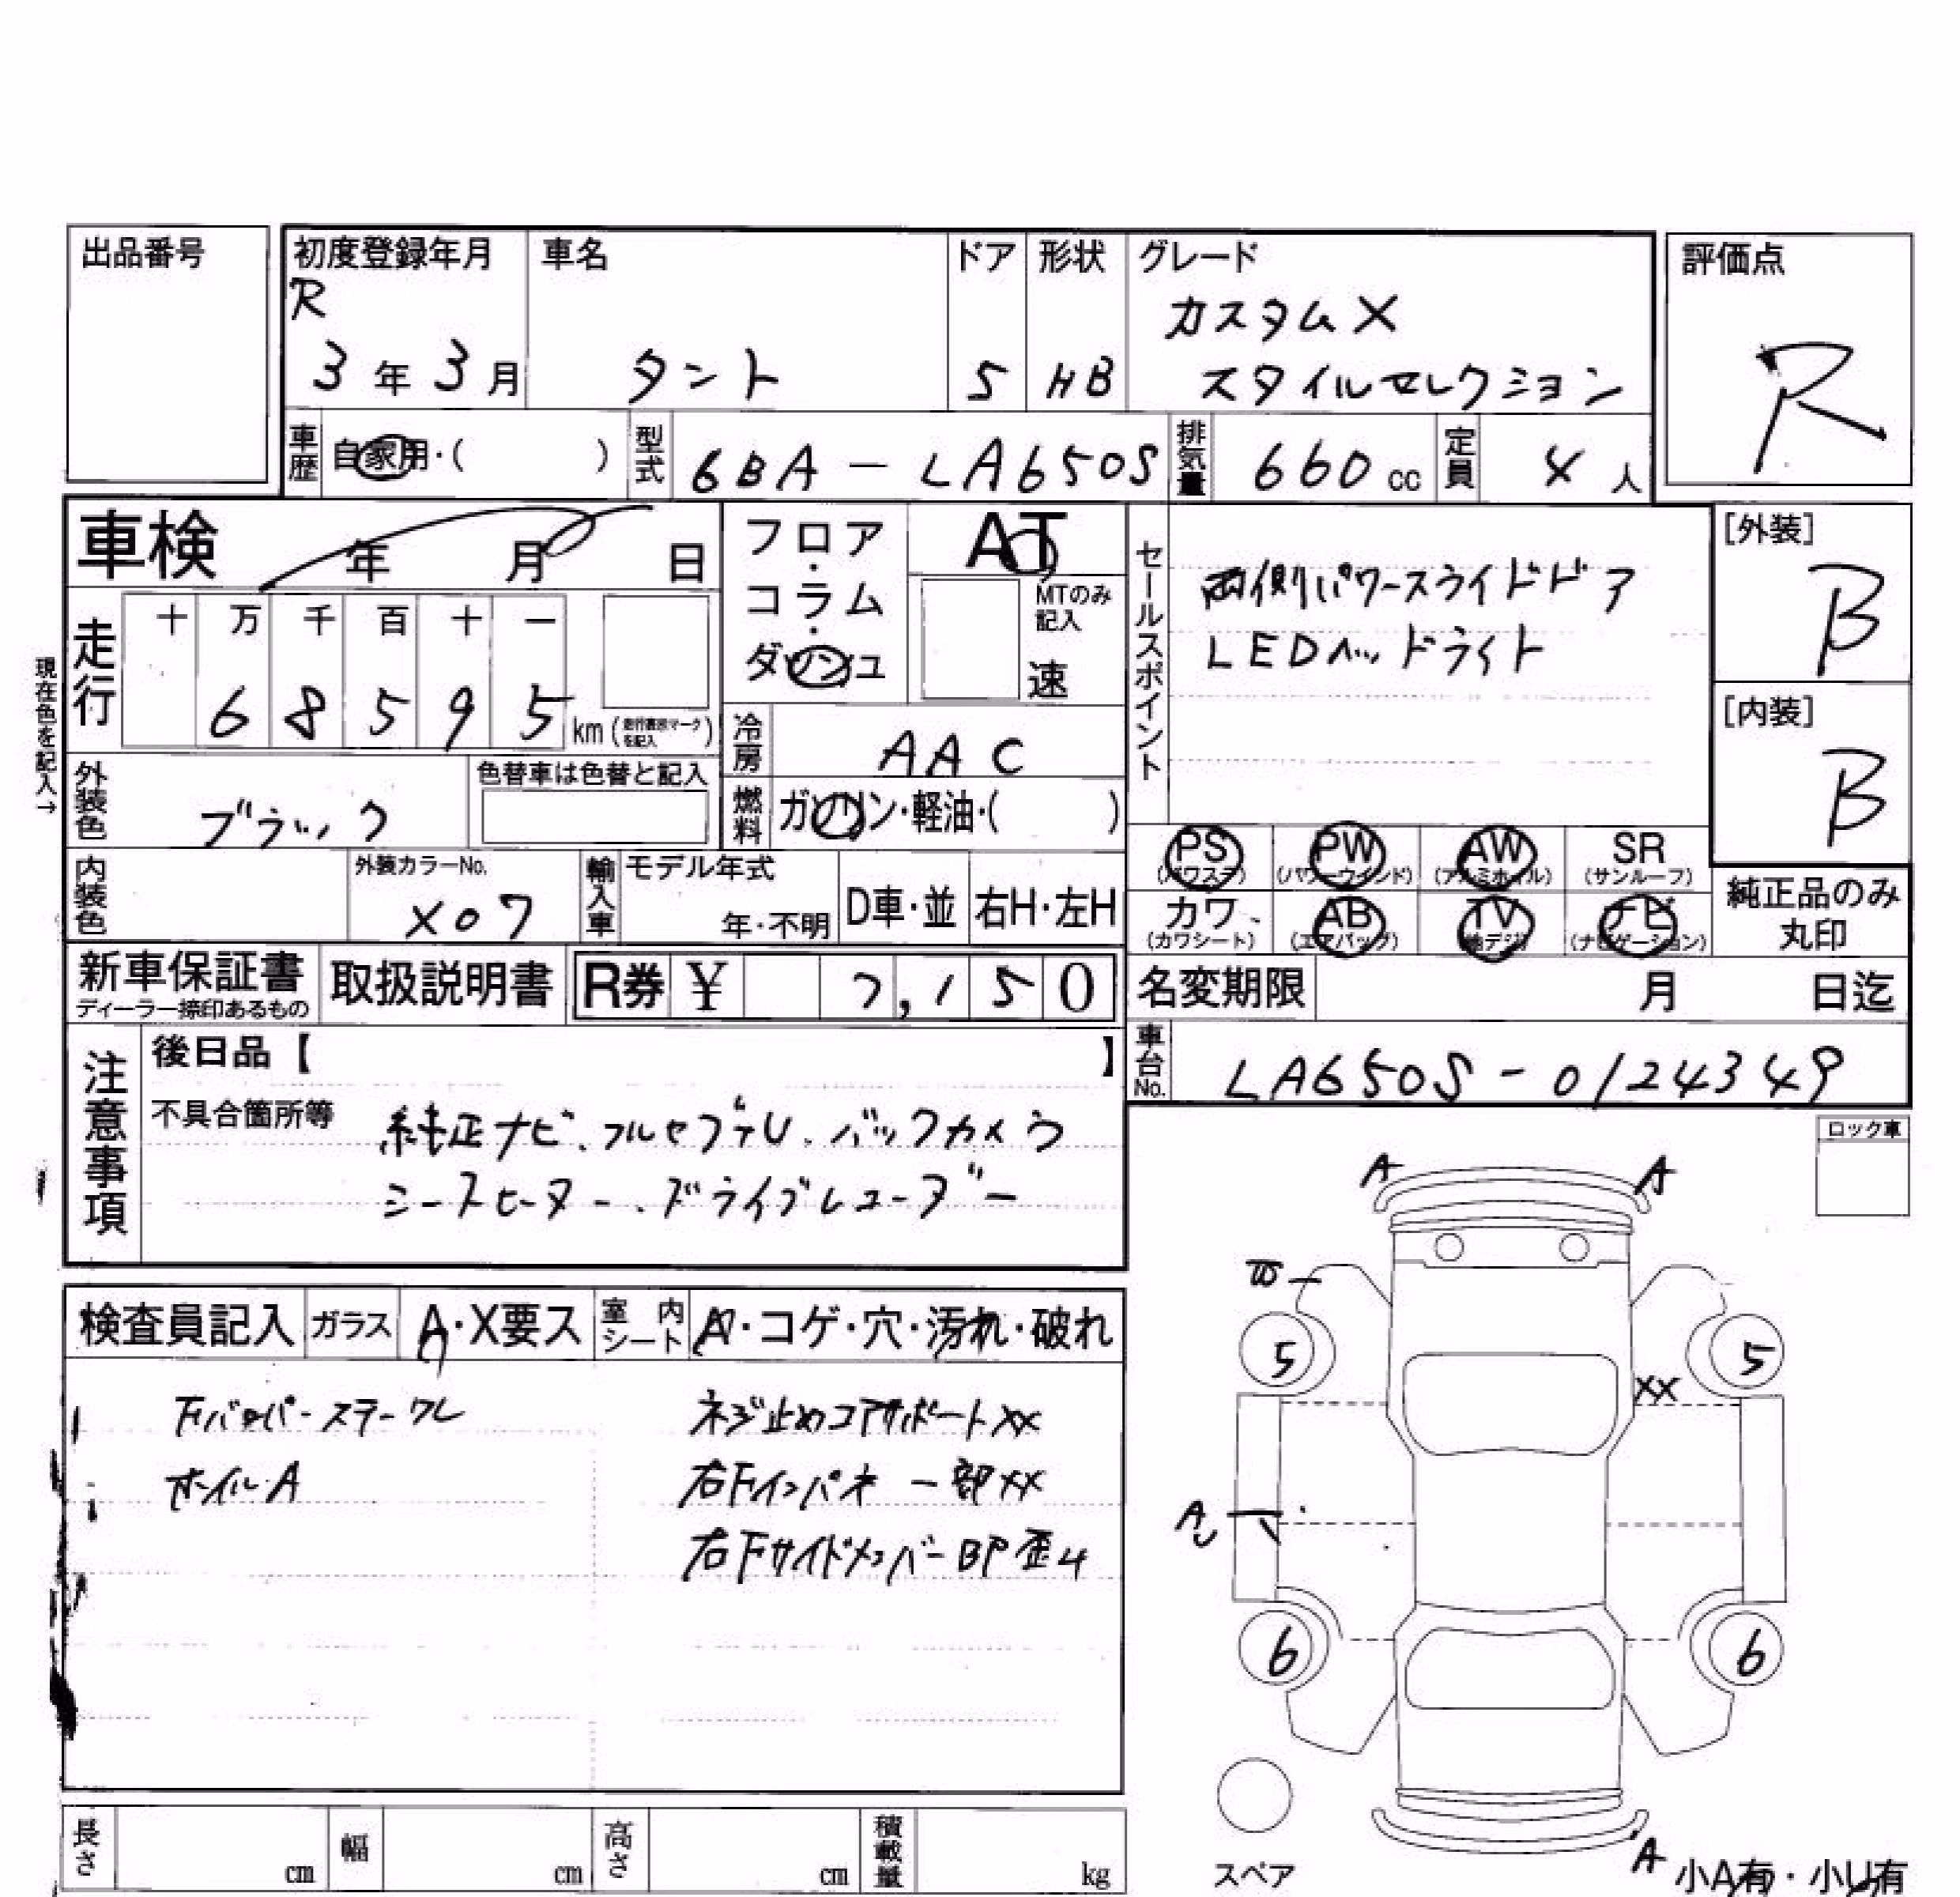 出品番号
初度登録年月 車名 ドア 形状 グレード 評価点
R
3年3月 タント 5 HB カスタムX
スタイルセレクション
R
車歴 自家用・( ) 型式 6BA-LA650S 排気量 660cc 定員 4人
車検 年 月 日
フロア・コラム・ダッシュ AT
MTのみ記入
速
セールスポイント
両側パワースライドドア
LEDヘッドライト
[外装]
B
[内装]
B
現在色を記入→
走行 十 万 千 百 十 一
6 8 5 9 5 km (走行表示マークを記入)
冷房 AAC
外装色 ブラック 色替車は色替と記入
燃料 ガソリン・軽油・( )
PS (パワステ) PW (パワーウインド) AW (アルミホイル) SR (サンルーフ)
カワ (カワシート) AB (エアバッグ) TV (地デジ) ナビ (ナビゲーション)
純正品のみ丸印
内装色 外装カラーNo. X07 輸入車 モデル年式 年・不明 D車・並 右H・左H
新車保証書 ディーラー捺印あるもの 取扱説明書 R券 ¥ 7,150
名変期限 月 日迄
車台No. LA650S-0124349
注意事項
後日品【 】
不具合箇所等 純正ナビ、フルセブテレ、バックカメラ
シートヒーター、ドライブレコーダー
ロック車
検査員記入 ガラス A・X要ス 室内シート A・コゲ・穴・汚れ・破れ
下バンパーステーワレ ネジ止めコアサポートXX
ホイルA 右Fインパネ一部XX
右FサイドメンバーBP歪み
A A
W
5 5
XX
A
6 6
スペア
A
小A有・小U有
長さ cm 幅 cm 高さ cm 積載量 kg